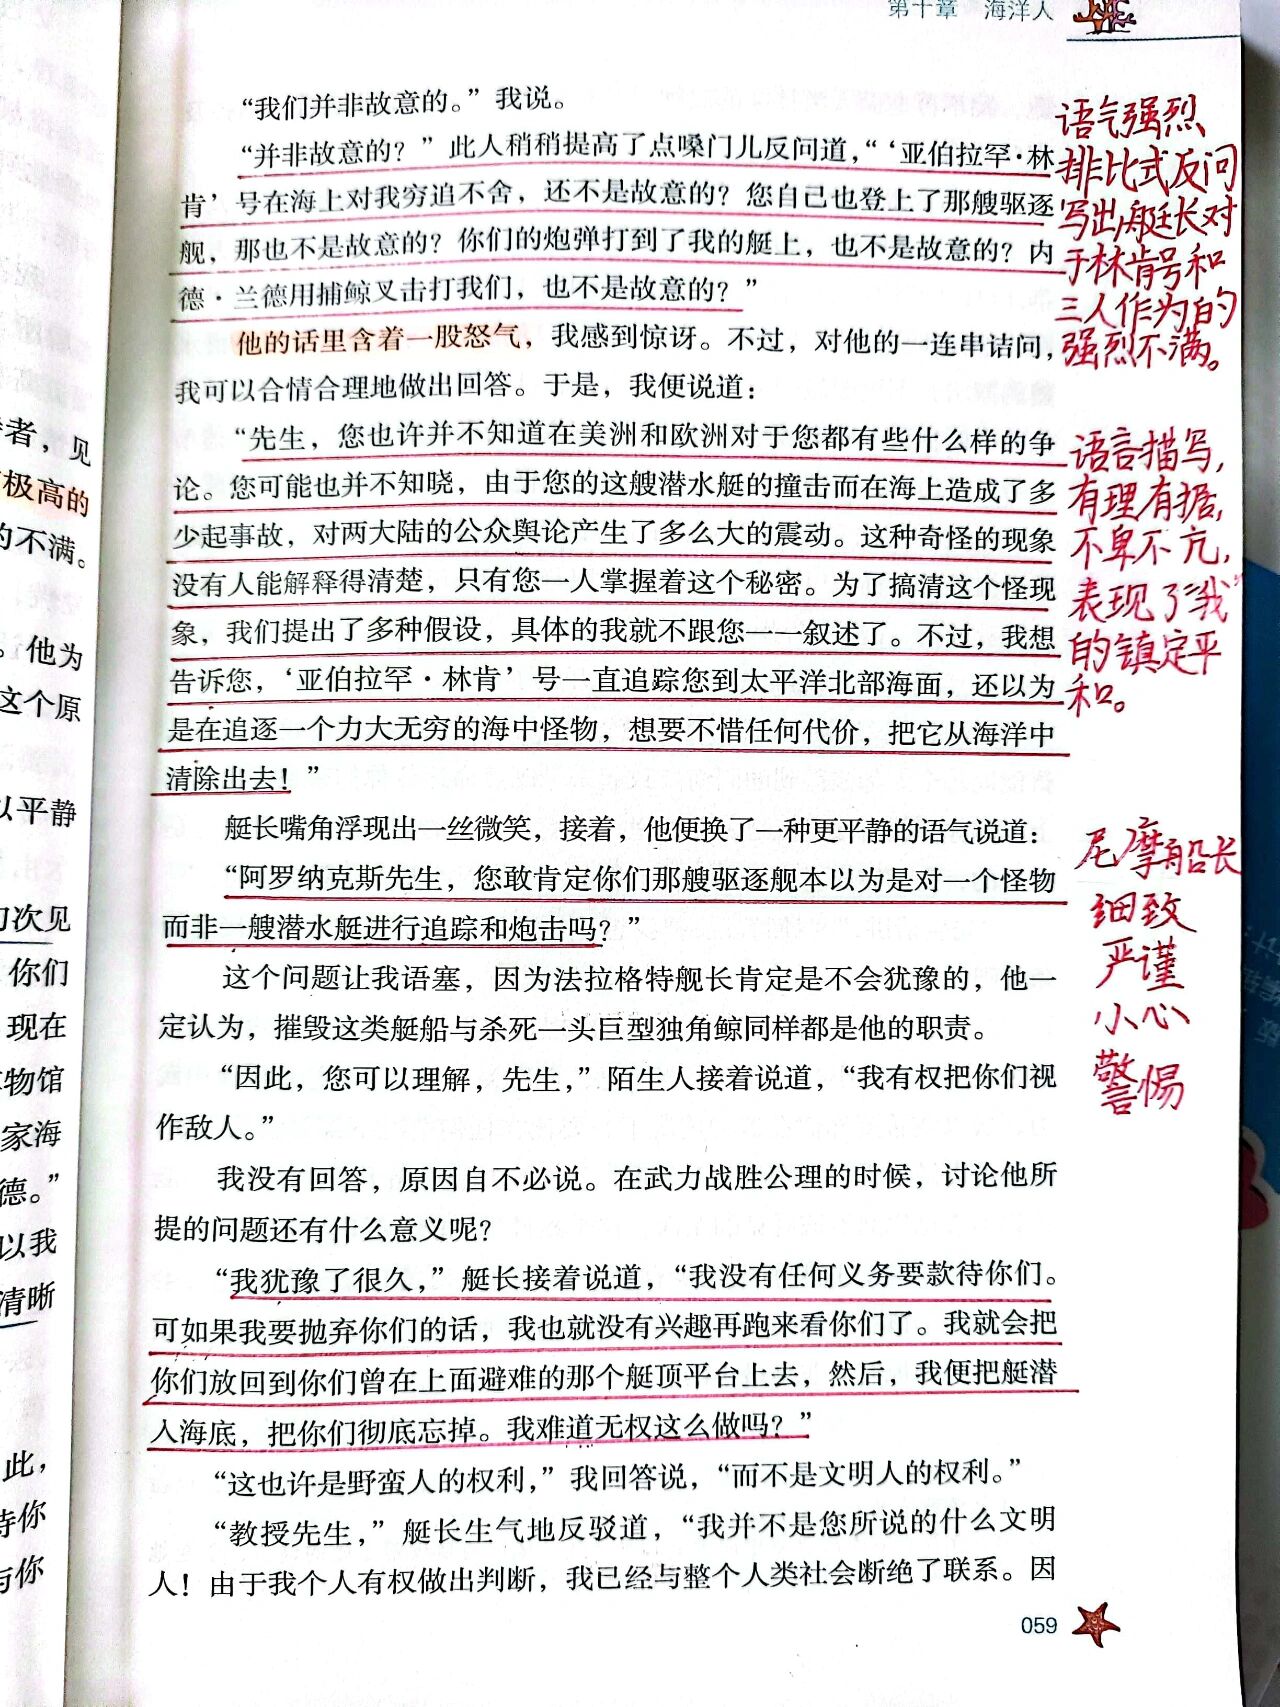 第十章 海洋人
“我们并非故意的。”我说。
“并非故意的？”此人稍稍提高了点嗓门儿反问道，“‘亚伯拉罕·林
肯’号在海上对我穷追不舍，还不是故意的？您自己也登上了那艘驱逐
舰，那也不是故意的？你们的炮弹打到了我的艇上，也不是故意的？内
德·兰德用捕鲸叉击打我们，也不是故意的？”
他的话里含着一股怒气，我感到惊讶。不过，对他的一连串诘问，
我可以合情合理地做出回答。于是，我便说道：
“先生，您也许并不知道在美洲和欧洲对于您都有些什么样的争
论。您可能也并不知晓，由于您的这艘潜水艇的撞击而在海上造成了多
少起事故，对两大陆的公众舆论产生了多么大的震动。这种奇怪的现象
没有人能解释得清楚，只有您一人掌握着这个秘密。为了搞清这个怪现
象，我们提出了多种假设，具体的我就不跟您一一叙述了。不过，我想
告诉您，‘亚伯拉罕·林肯’号一直追踪您到太平洋北部海面，还以为
是在追逐一个力大无穷的海中怪物，想要不惜任何代价，把它从海洋中
清除出去！”
艇长嘴角浮现出一丝微笑，接着，他便换了一种更平静的语气说道：
“阿罗纳克斯先生，您敢肯定你们那艘驱逐舰本以为是对一个怪物
而非一艘潜水艇进行追踪和炮击吗？”
这个问题让我语塞，因为法拉格特舰长肯定是不会犹豫的，他一
定认为，摧毁这类艇船与杀死一头巨型独角鲸同样都是他的职责。
“因此，您可以理解，先生，”陌生人接着说道，“我有权把你们视
作敌人。”
我没有回答，原因自不必说。在武力战胜公理的时候，讨论他所
提的问题还有什么意义呢？
“我犹豫了很久，”艇长接着说道，“我没有任何义务要款待你们。
可如果我要抛弃你们的话，我也就没有兴趣再跑来看你们了。我就会把
你们放回到你们曾在上面避难的那个艇顶平台上去，然后，我便把艇潜
入海底，把你们彻底忘掉。我难道无权这么做吗？”
“这也许是野蛮人的权利，”我回答说，“而不是文明人的权利。”
“教授先生，”艇长生气地反驳道，“我并不是您所说的什么文明
人！由于我个人有权做出判断，我已经与整个人类社会断绝了联系。因
059
语气强烈
排比式反问
写出艇长对
于林肯号和
三人作为的
强烈不满。
语言描写，
有理有据，
不卑不亢，
表现了“我”
的镇定平
和。
尼摩船长
细致
严谨
小心
警惕
者，见
极高的
的不满。
。他为
这个原
以平静
初次见
你们
现在
物馆
家海
德。”
以我
清晰
此，
待你
与你